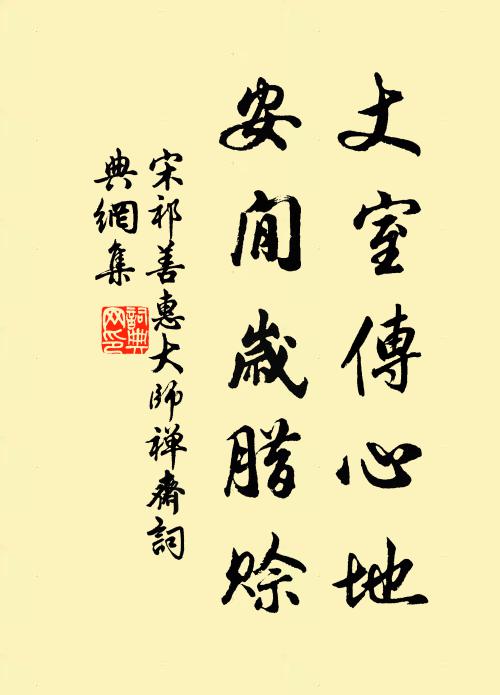 丈室傳心地
安閒歲腊賒
宋祁善惠大師禅齋詞
典網集
詞典
网印